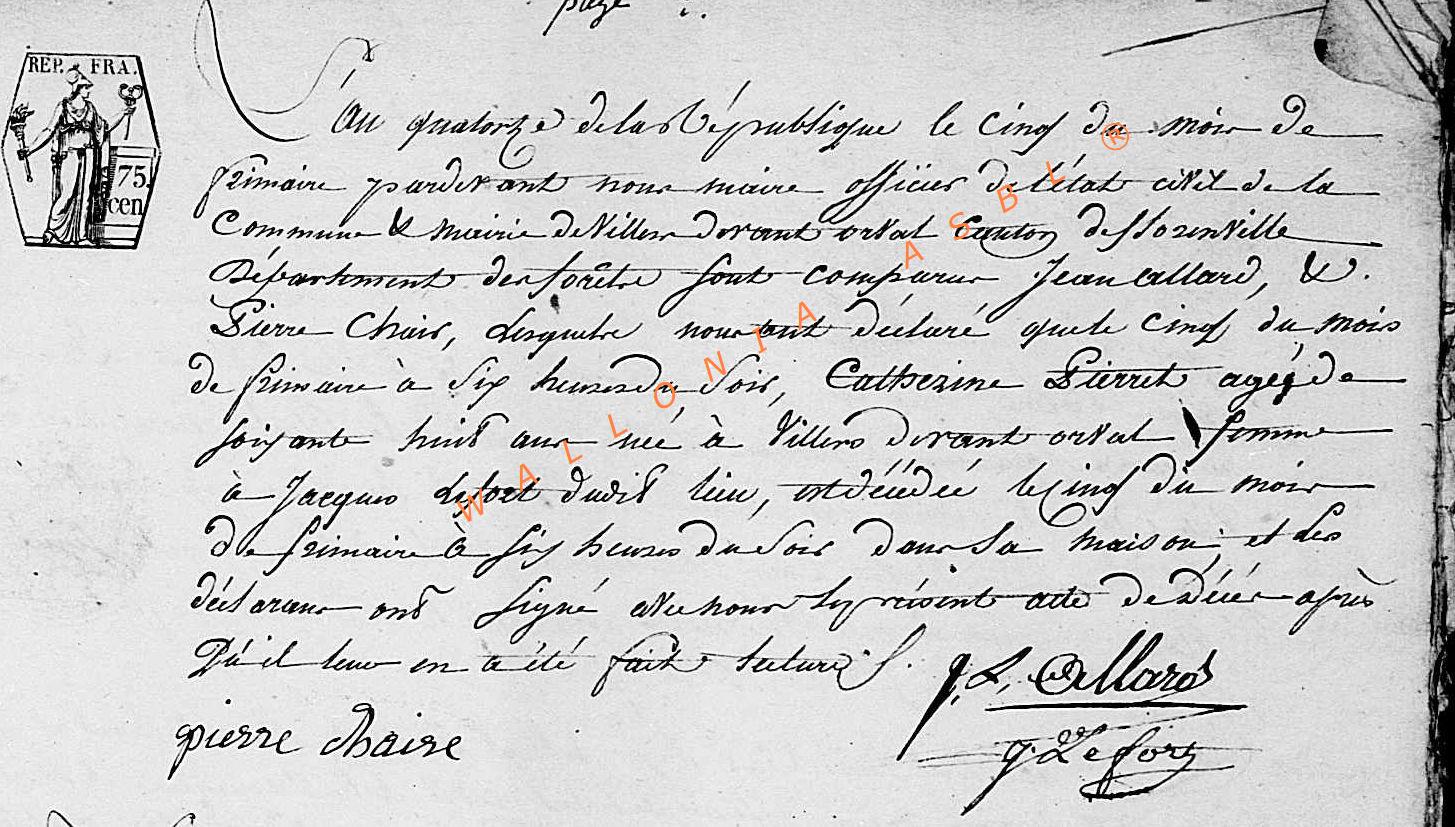 page
REP. FRA.
75
cen
L'An quatorze de la République le cinq du mois de
frimaire pardevant nous maire officier de l'état civil de la
Commune & mairie de Villers devant orval Canton de florenville
Département des forêts sont comparus Jean allard, &
Pierre Chair, lesquels nous ont déclaré que le cinq du mois
de frimaire à six heures du soir, Catherine Pierret agée de
soixante huit ans née à Villers devant orval femme
à Jacques lefort dudit lieu, est décédée le cinq du mois
de frimaire à six heures du soir dans sa maison, et les
déclarans ont signé avec nous le présent acte de décés après
qu'il leur en a été fait lecture
J. L. Allard
pierre Chaire
J. Lefort
WALLONIA ASBL ®